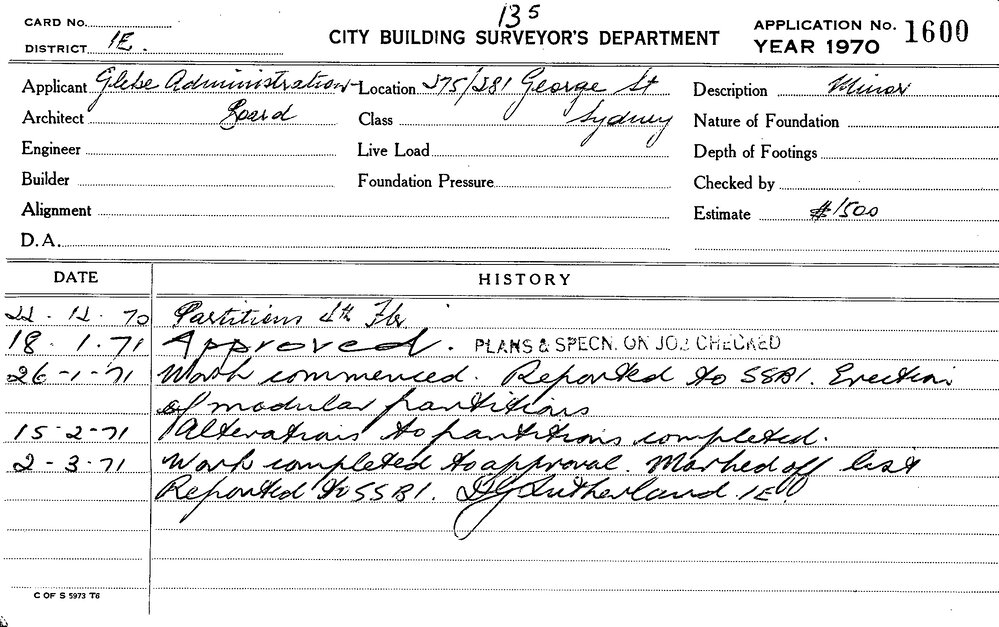 135
CARD No.
DISTRICT 1E.
CITY BUILDING SURVEYOR'S DEPARTMENT
APPLICATION No. 1600
YEAR 1970
Applicant Glebe Administration Location 375/381 George St Description Minor
Architect Board Class Sydney Nature of Foundation
Engineer Live Load Depth of Footings
Builder Foundation Pressure Checked by
Alignment Estimate $1500
D.A.
DATE HISTORY
22.12.70 Partitions 4th Flr
18.1.71 Approved. PLANS & SPECN. ON JOB CHECKED
26-1-71 Work commenced. Reported to SSBI. Erection
of modular partitions
15-2-71 Alterations to partitions completed.
2-3-71 Work completed to approval. Marked off list
Reported to SSBI. Sutherland. 1E
C OF S 5973 T6